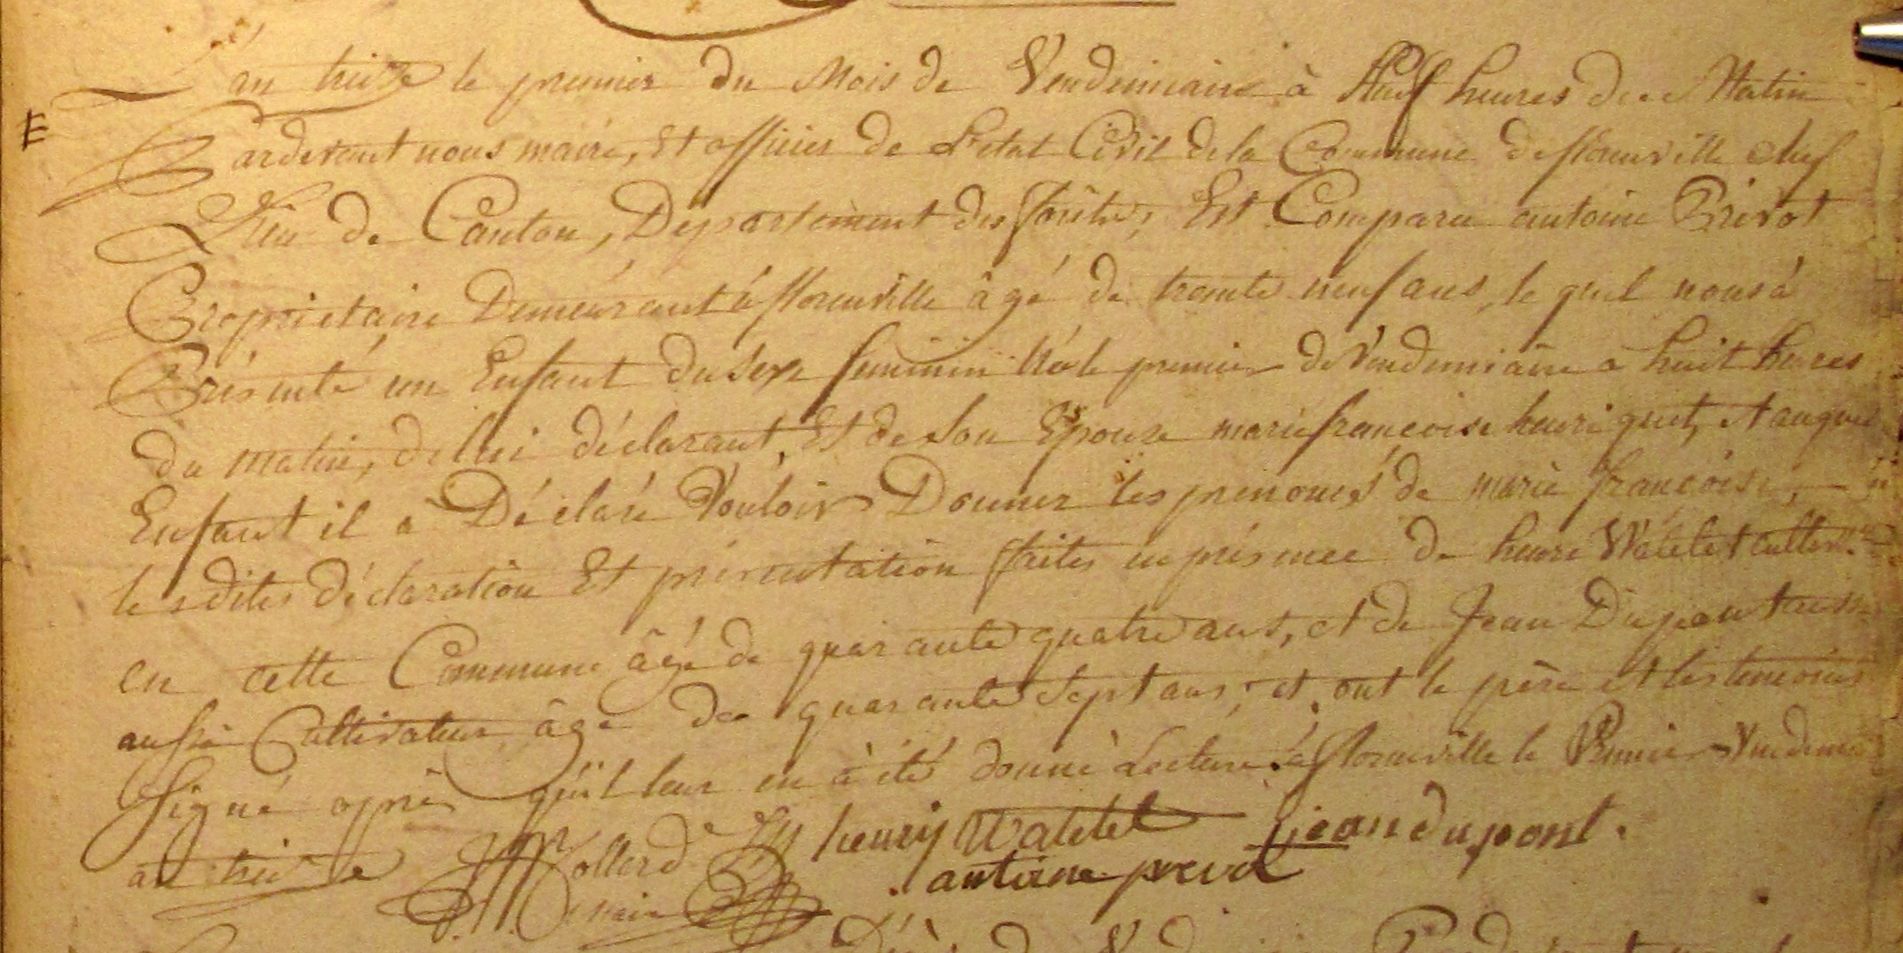 an treize le premier du Mois de Vendemiaire à Neuf heures du Matin
Pardevant nous maire, Et officier de L'etat Civil de la Commune de florenville chef
Lieu de Canton, Département des forêts, Est Comparu antoine Prevot
Proprietaire Demeurant à florenville âgé de trente neuf ans, le quel nous à
Présenté un Enfant du Sexe feminin Né le premier de Vendemiaire à huit heures
du matin, de lui déclarant, Et de Son Epouse marie francoise henriquet, Et auquel
Enfant il a Déclaré Vouloir Donner les prenoms de marie francoise,
les dites déclaration Et présentation faites en présence de henri Watelet
en cette Commune âgé de quarante quatre ans, et de Jean Dupont
aussi Cultivateur âgé de quarante Sept ans, et ont le père et les temoins
Signé après qu'il leur en à été donné Lecture à florenville le Premier
an treize Collard henry Watelet jean dupont.
maire antoine prevot